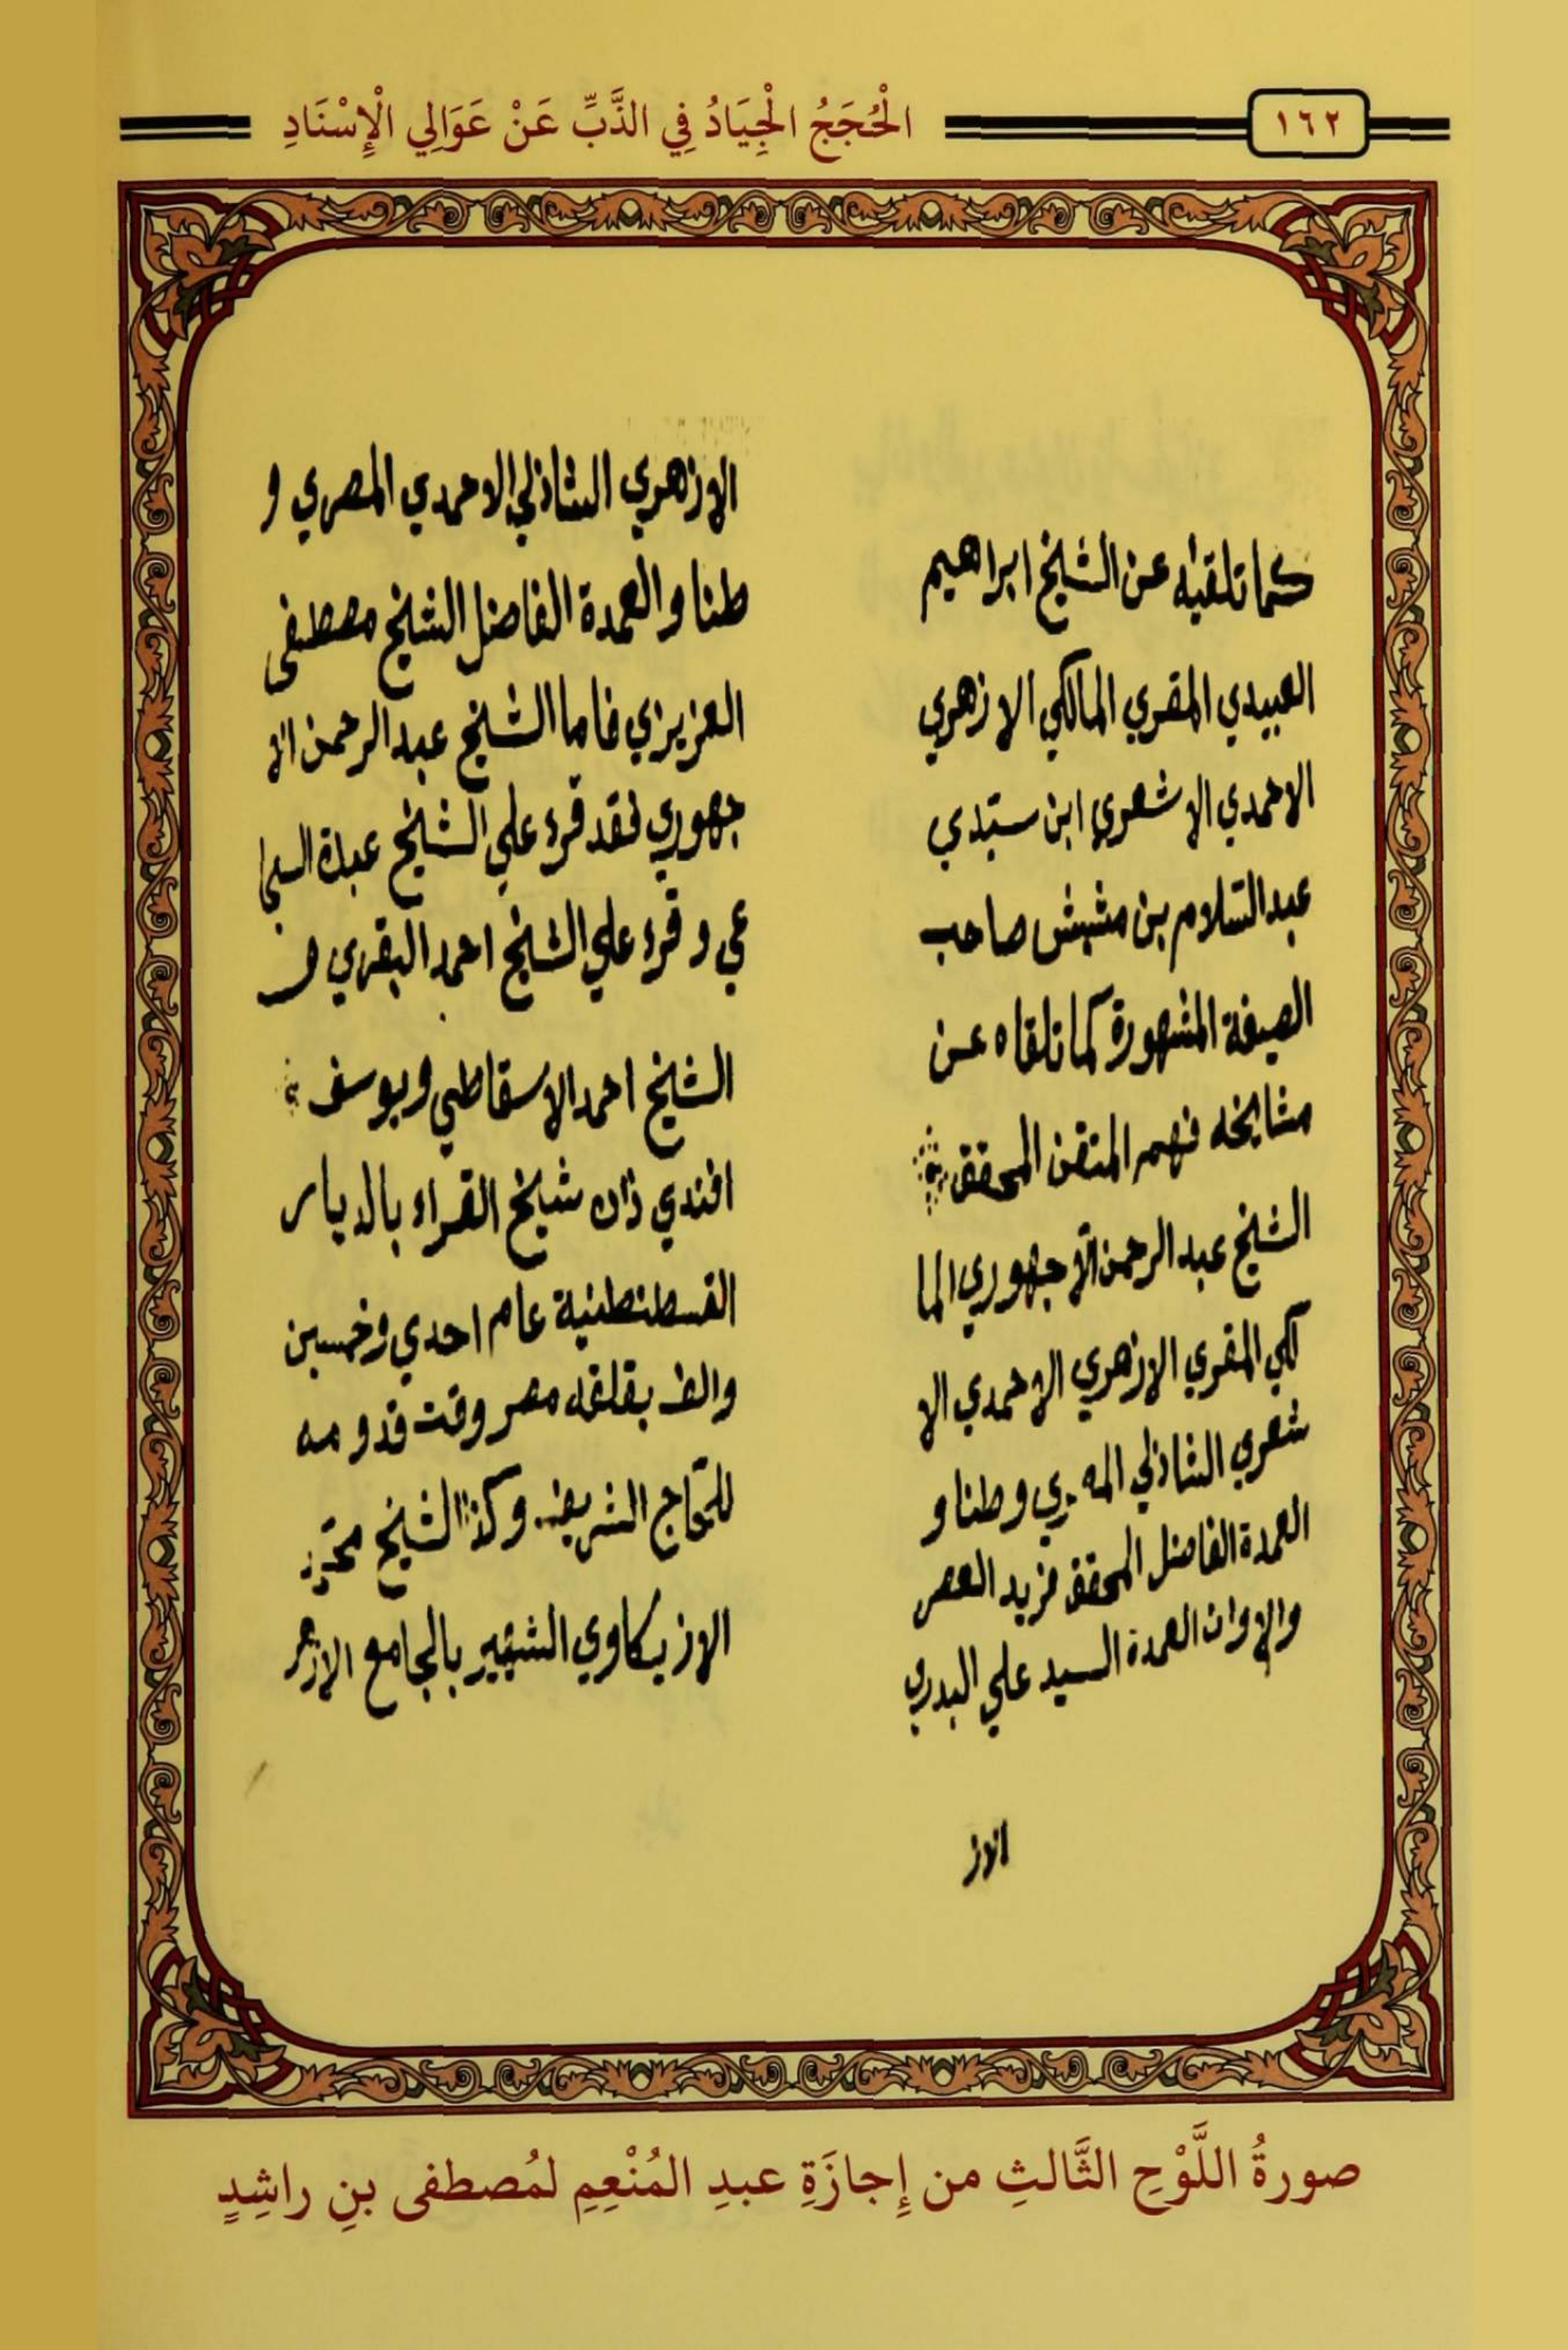 ١٦٢
الْحُجَجُ الْجِيَادُ فِي الذَّبِّ عَنْ عَوَالِي الْإِسْنَادِ
كما تلقيته عن الشيخ ابراهيم
العبيدي المقري المالكي الازهري
الاحمدي الاشعوي ابن سيدي
عبد السلام بن مشيش صاحب
الصيغة المشهورة كما تلقاه عن
مشايخه فمنهم المتقن المحقق
الشيخ عبد الرحمن الاجهوري الما
لكي المقري الازهري الاحمدي الا
شعري الشاذلي وطنا و
العمدة الفاضل المحقق فريد العصر
والاوان العمدة السيد علي البدري
الاز
الازهري الشاذلي الاحمدي المصري و
طنا والعمدة الفاضل الشيخ مصطفى
العزيزي فاما الشيخ عبد الرحمن الا
جهوري فقد قرء علي الشيخ عبدة السجا
عي وقرء علي الشيخ احمد البقري و
الشيخ احمد الاسقاطي ويوسف
افندي زاده شيخ القراء بالديار
القسطنطنية عام احدي وخمسين
والف بقلقه مصر وقت قدومه
للحاج الشريف وكذا الشيخ محمد
الازبكاوي الشهير بالجامع الازهر
صورةُ اللَّوْحِ الثَّالثِ من إِجازَةِ عبدِ المُنْعِمِ لمُصطفى بنِ راشِدٍ